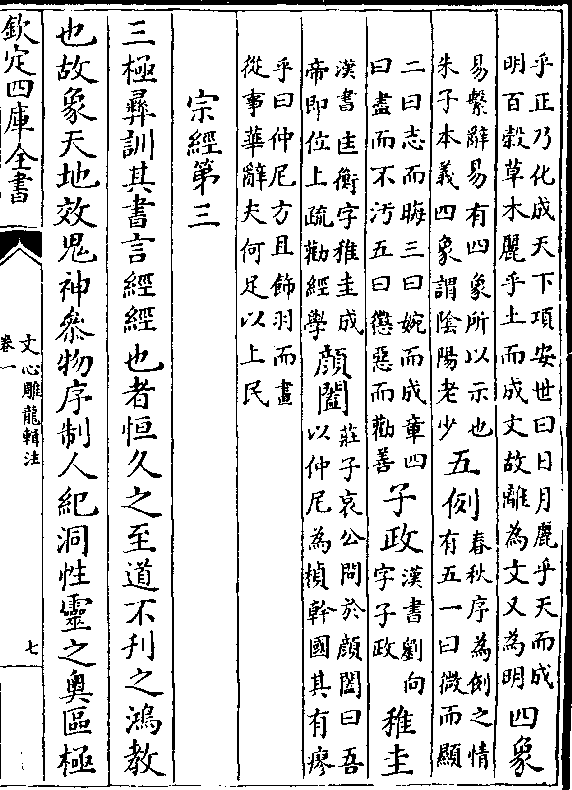 乎正乃化成天下項安世曰日月麗乎天而成
明百穀草木麗乎土而成文故離為文又為明
四象
易繫辭易有四象所以示也
朱子本義四象謂陰陽老少
五例
春秋序為例之情
有五一曰微而顯
二曰志而晦三曰婉而成章四
曰盡而不汚五曰懲惡而勸善
子政
漢書劉向
字子政
稚圭
漢書匡衡字稚圭成
帝即位上疏勸經學
顔闔
莊子哀公問於顔闔曰吾
以仲尼為楨幹國其有瘳
乎曰仲尼方且飾羽而畫
從事華辭夫何足以上民
宗經第三
三極彞訓其書言經經也者恒久之至道不刋之鴻教
也故象天地效鬼神叅物序制人紀洞性靈之奥區極
欽定四庫全書
文心雕龍輯注
卷一
七